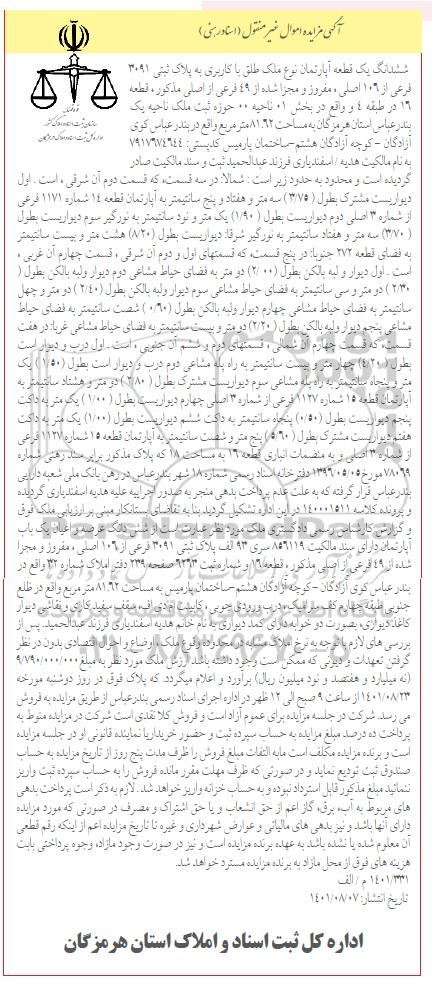 آگهی مزایده اموال غیرمنقول (اسناد رهنی)
ششدانگ یک قطعه آپارتمان نوع ملک طلق با کاربری به پلاک ثبتی ۳۰۹۱
فرعی از ۱۰۶ اصلی ، مفروز و مجزا شده از ۴۹ فرعی از اصلی مذکور ، قطعه
۱۶ در طبقه ۴ و واقع در بخش ۰۱ ناحیه ۰۰ حوزه ثبت ملک ناحیه یک
بندرعباس استان هرمزگان به مساحت ۸۱.۶۲ متر مربع واقع در بندرعباس کوی
آزادگان - کوچه آزادگان هشتم-ساختمان پارمیس کدپستی: ۷۹۱۷۶۷۴۶۴۴
به نام مالکیت هدیه / اسفندیاری فرزند عبدالحمید ثبت و سند مالکیت صادر
گردیده است و محدود به حدود زیر است : شمالا: در سه قسمت، که قسمت دوم آن شرقی ، است . اول
دیواریست مشترک بطول (۳/۷۵) سه متر و هفتاد و پنج سانتیمتر به آپارتمان قطعه ۱۴ شماره ۱۱۷۱ فرعی
از شماره ۳ اصلی دوم دیواریست بطول (۱/۹۰) یک متر و نود سانتیمتر به نورگیر سوم دیواریست بطول
(۳/۷۰) سه متر و هفتاد سانتیمتر به نورگیر شرقا: دیواریست بطول (۸/۲۰) هشت متر و بیست سانتیمتر
به فضای قطعه ۲۷۲ جنوبا: در پنج قسمت، که قسمتهای اول و دوم آن شرقی ، قسمت چهارم آن غربی ،
است . اول دیوار و لبه بالکن بطول (۲/۰۰) دو متر به فضای حیاط مشاعی دوم دیوار ولبه بالکن بطول (
۲/۳۰) دو متر و سی سانتیمتر به فضای حیاط مشاعی سوم دیوار ولبه بالکن بطول (۲/۴۰) دو متر و چهل
سانتیمتر به فضای حیاط مشاعی چهارم دیوار ولبه بالکن بطول (۰/۶۰) شصت سانتیمتر به فضای حیاط
مشاعی پنجم دیوار ولبه بالکن بطول (۲/۲۰) دو متر و بیست سانتیمتر به فضای حیاط مشاعی غربا: در هفت
قسمت، که قسمت چهارم آن شمالی ، قسمتهای دوم و ششم آن جنوبی ، است . اول درب و دیوار است
بطول (۴/۲۰) چهار متر و بیست سانتیمتر به راه پله مشاعی دوم درب و دیوار است بطول (۱/۵۰) یک
متر و پنجاه سانتیمتر به راه پله مشاعی سوم دیواریست مشترک بطول (۲/۸۰) دو متر و هشتاد سانتیمتر به
آپارتمان قطعه ۱۵ شماره ۱۱۲۷ فرعی از شماره ۳ اصلی چهارم دیواریست بطول (۱/۰۰) یک متر به داکت
پنجم دیواریست بطول (۰/۵۰) پنجاه سانتیمتر به داکت ششم دیواریست بطول (۱/۰۰) یک متر به داکت
هفتم دیواریست مشترک بطول (۵/۶۰) پنج متر و شصت سانتیمتر به آپارتمان قطعه ۱۵ شماره ۱۱۲۷ فرعی
از شماره ۳ اصلی و به منضمات انباری قطعه ۱۶ به مساحت ۱.۸ که پلاک مذکور برابر سند رهنی شماره
۷۸۰۶۹ مورخ ۱۳۹۶/۰۵/۰۵ دفترخانه اسناد رسمی شماره ۱۸ شهر بندرعباس در رهن بانک ملی شعبه دارایی
بندرعباس قرار گرفته که به علت عدم پرداخت بدهی منجر به صدور اجراییه علیه هدیه اسفندیاری گردیده
و پرونده کلاسه ۱۴۰۰۰۱۵۱۱ در این اداره تشکیل گردید بنا به تقاضای بستانکار مبنی بر ارزیابی ملک فوق
و گزارش کارشناس رسمی دادگستری ملک مورد نظر عبارت است از شش دانگ عرصه و اعیان یک باب
آپارتمان دارای سند مالکیت ۸۵۶۱۱۹ سری ۹۳ الف پلاک ثبتی ۳۰۹۱ فرعی از ۱۰۶ اصلی ، مفروز و مجزا
شده از ۴۹ فرعی از اصلی مذکور ، قطعه ۱۶ و شماره ثبت ۶۳۶۳ صفحه ۲۳۹ دفتر املاک شماره ۳۲ واقع در
بندرعباس کوی آزادگان -کوچه آزادگان هشتم-ساختمان پارمیس به مساحت ۸۱.۶۲ متر مربع واقع در ظلع
جنوبی طبقه چهارم کف سرامیک، درب ورودی چوبی ، کابینت ام دی اف، سقف سفید کاری و نقاشی دیوار
کاغذدیواری، بصورت دو خوابه دارای کمد دیواری به نام خانم هدیه اسفندیاری فرزند عبدالحمید. پس از
بررسی های لازم با توجه به نرخ املاک مشابه در محدوده وقوع ملک ، اوضاع و احوال اقتصادی بدون در نظر
گرفتن تعهدات و دیونی که ممکن است وجود داشته باشد ارزش ملک مورد نظر به مبلغ ۹/۷۹۰/۰۰۰/۰۰۰
(نه میلیارد و هفتصد و نود میلیون ریال) برآورد و اعلام میگردد. که پلاک فوق در روز دوشنبه مورخه
۱۴۰۱/۰۸/۲۳ از ساعت ۹ صبح الی ۱۲ ظهر در اداره اجرای اسناد رسمی بندرعباس از طریق مزایده به فروش
می رسد. شرکت در جلسه مزایده برای عموم آزاد است و فروش کلا نقدی است شرکت در مزایده منوط به
پرداخت ده درصد مبلغ مزایده به حساب سپرده ثبت و حضور خریدار یا نماینده قانونی او در جلسه مزایده
است و برنده مزایده مکلف است مابه التفات مبلغ فروش را ظرف مدت پنج روز از تاریخ مزایده به حساب
صندوق ثبت تودیع نماید و در صورتی که ظرف مهلت مقرر مانده فروش را به حساب سپرده ثبت واریز
ننمائید مبلغ مذکور قابل استرداد نبوده و به حساب خزانه واریز خواهد شد. لازم به ذکر است پرداخت بدهی
های مربوط به آب، برق، گاز اعم از حق انشعاب و یا حق اشتراک و مصرف در صورتی که مورد مزایده
دارای آنها باشد و نیز بدهی های مالیاتی و عوارض شهرداری و غیره تا تاریخ مزایده اعم از اینکه رقم قطعی
آن معلوم شده یا نشده باشد به عهده برنده مزایده است و نیز در صورت وجود مازاد، وجوه پرداختی بابت
هزینه های فوق از محل مازاد به برنده مزایده مسترد خواهد شد.
۱۴۰۱/۳۳۱ م / الف
تاریخ انتشار: ۱۴۰۱/۰۸/۰۷
اداره کل ثبت اسناد و املاک استان هرمزگان